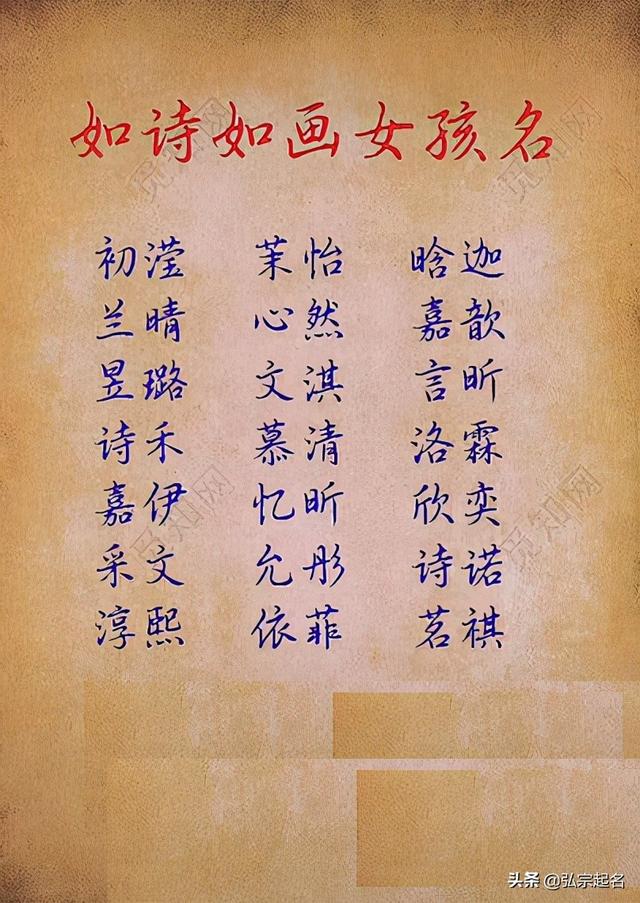 如诗如画女孩名
初滢 茉怡 晗迦
兰晴 心然 嘉歆
昱璐 文淇 言昕
诗禾 慕清 洛霖
嘉伊 忆昕 欣奕
采文 允彤 诗诺
淳熙 依菲 茗祺
觅知网
觅知网
觅知网
觅知网
头条 @弘宗起名